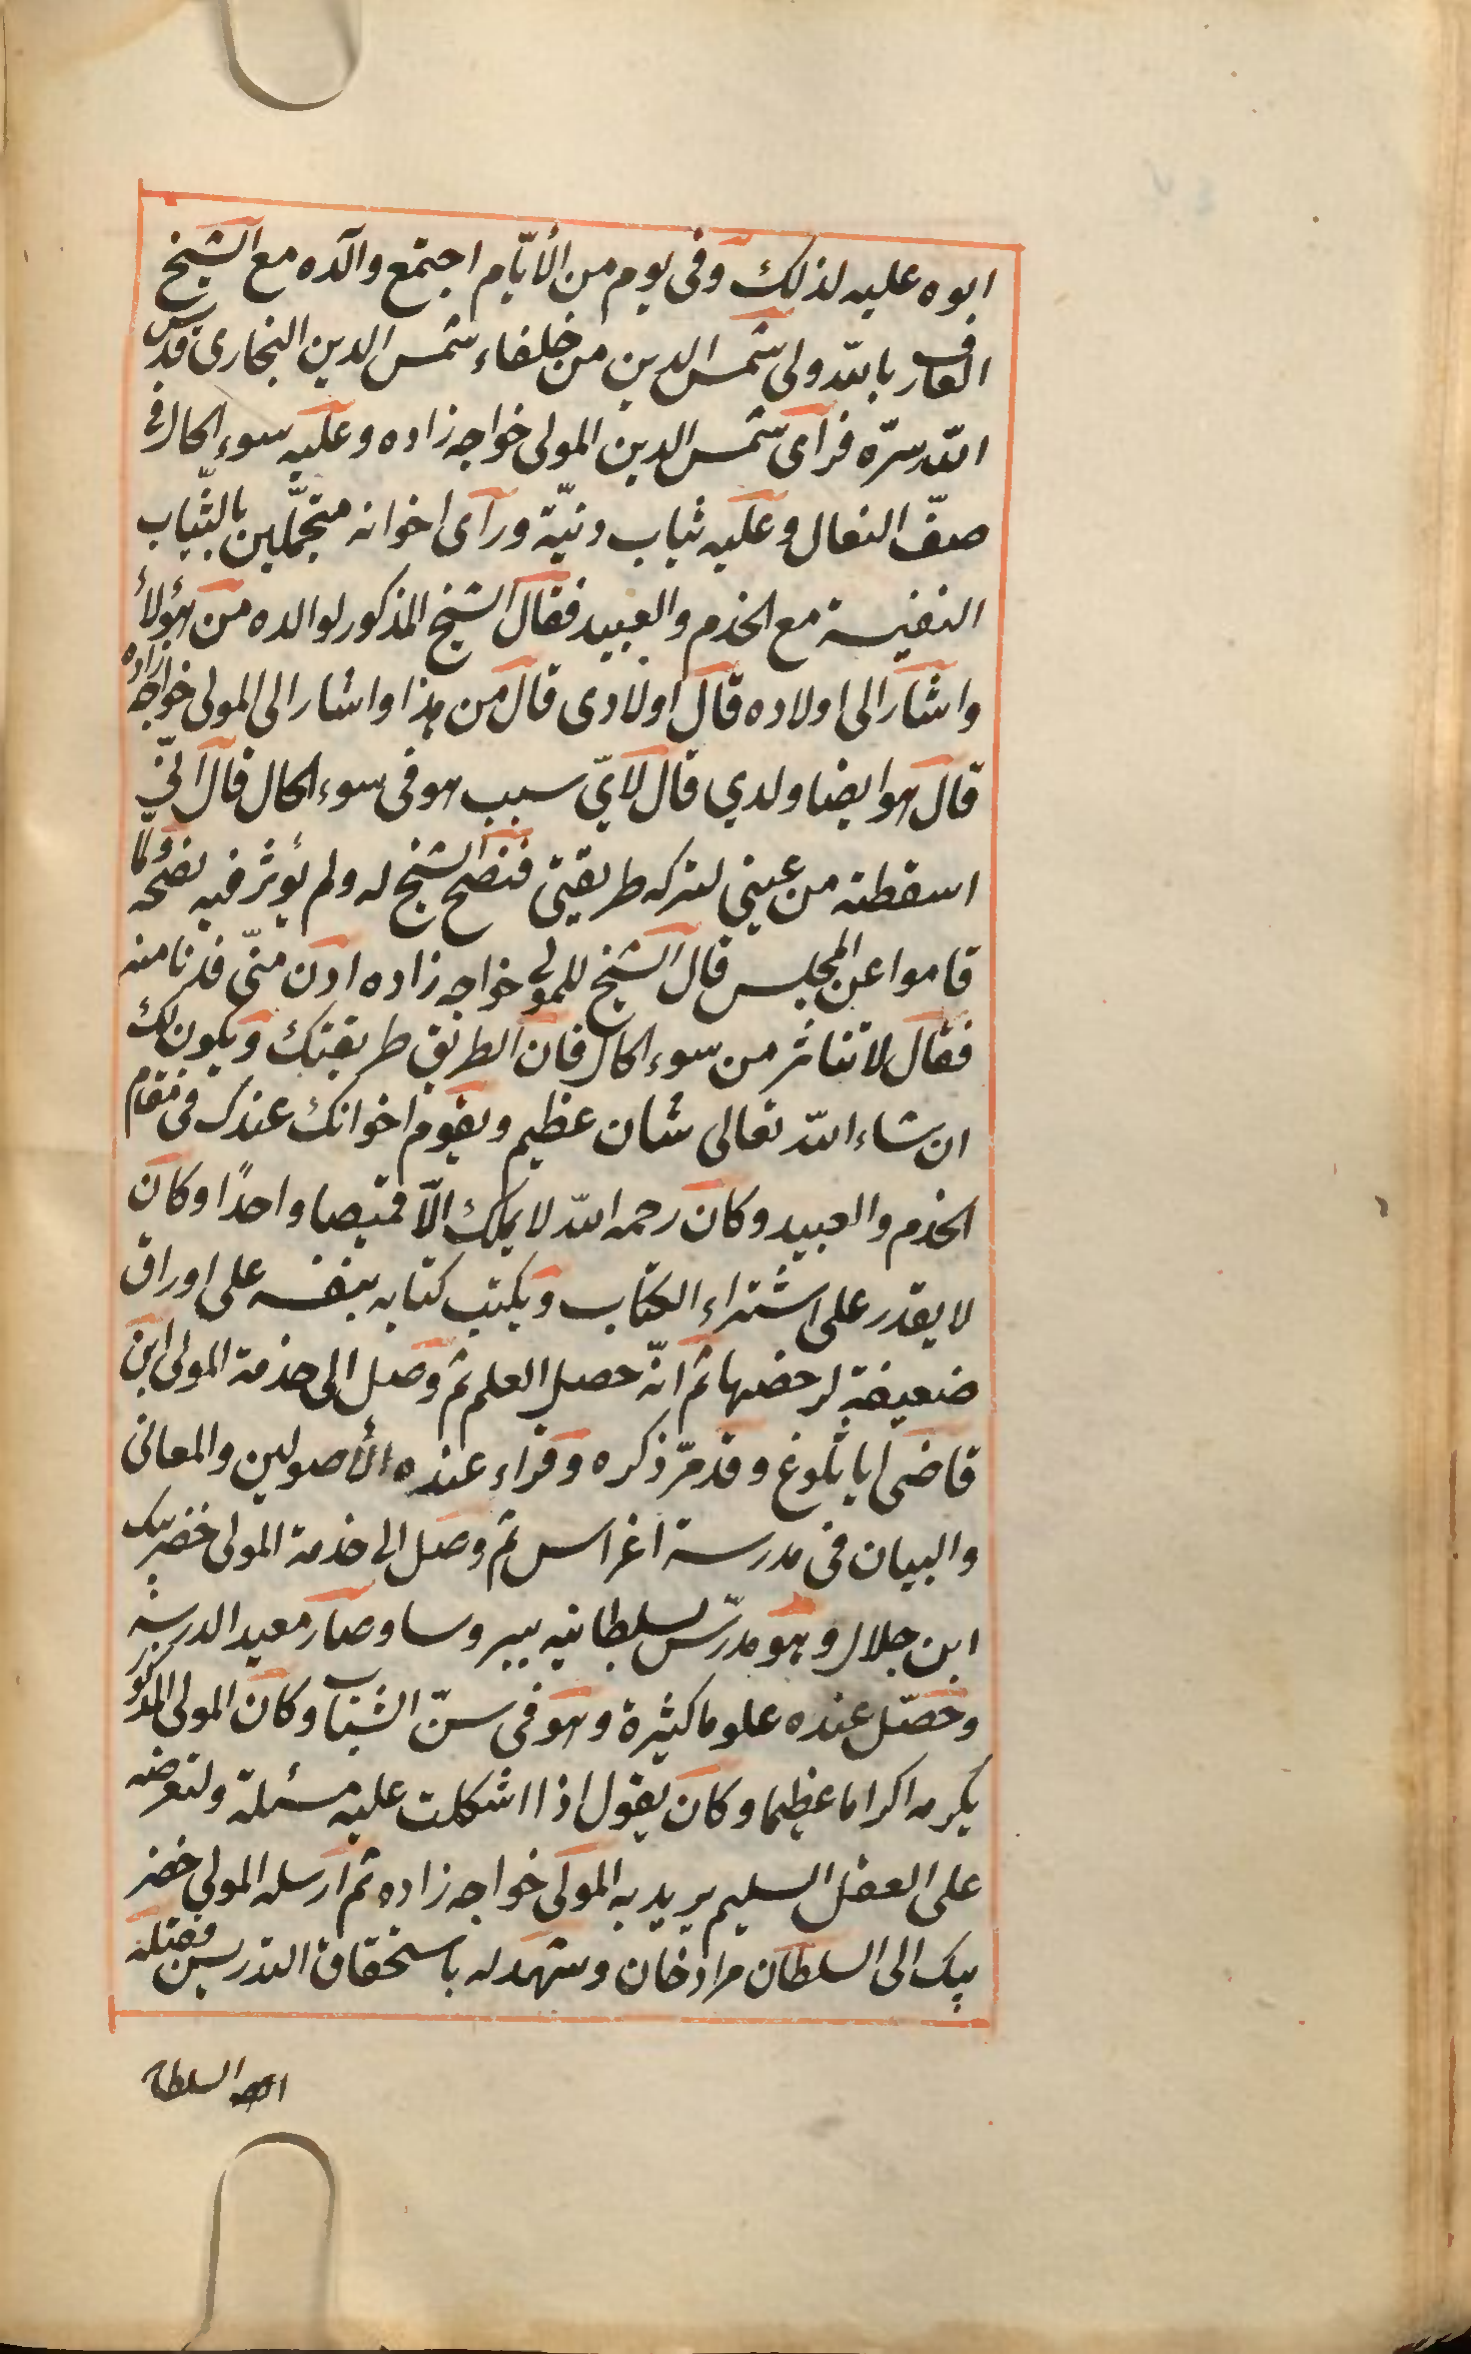 ابوه عليه لذلك وفى يوم من الأيّام اجتمع والده مع الشيخ
العارف بالله ولى شمس الدين من خلفاء شمس الدين البخارى قدس
الله سرّه فرآى شمس الدين المولى خواجه زاده وعليه سوء الحال فى
صفّ النعال وعليه ثياب دنيّة ورآى اخوانه متجمّلين بالثّياب
النفيسة مع الخدم والعبيد فقال الشيخ المذكور لوالده من هؤلاء
واشار الى اولاده قال اولادى قال من هذا واشار الى المولى خواجه زاده
قال هو ايضا ولدي قال لايّ سبب هو فى سوء الحال قال انّي
اسقطته من عيني لتركه طريقتى فنصح الشيخ له ولم يؤثر فيه نصحه ولمّا
قاموا عن المجلس قال الشيخ للمولى خواجه زاده ادن منّى فدنا منه
فقال لا تتاثر من سوء الحال فان الطريق طريقتك ويكون لك
ان شاء الله تعالى شان عظيم ويقوم اخوانك عندك فى مقام
الخدم والعبيد وكان رحمه الله لا يملك الّا قميصا واحدًا وكان
لا يقدر على اشتراء الكتاب ويكتب كتابه بنفسه على اوراق
ضعيفة لرخصها ثم انّه حصل العلم ثم وصل الى خدمة المولى ابن
قاضى اياثلوغ وقد مرّ ذكره وقراء عنده الأصولين والمعانى
والبيان فى مدرسة اغراس ثم وصل الى خدمة المولى خضر بيك
ابن جلال وهو مدرّس بسلطانيه ببروسا وصار معيد الدرسه
وحصّل عنده علوما كثيرة وهو فى سنّ الشباب وكان المولى المذكور
يكرمه اكراما عظيما وكان يقول اذا اشكلت عليه مسئلة ولتعرضه
على العقل السليم يريد به المولى خواجه زاده ثم ارسله المولى خضر
بيك الى السلطان مراد خان وشهد له باستحقاق التدريس فقبله
السلطا